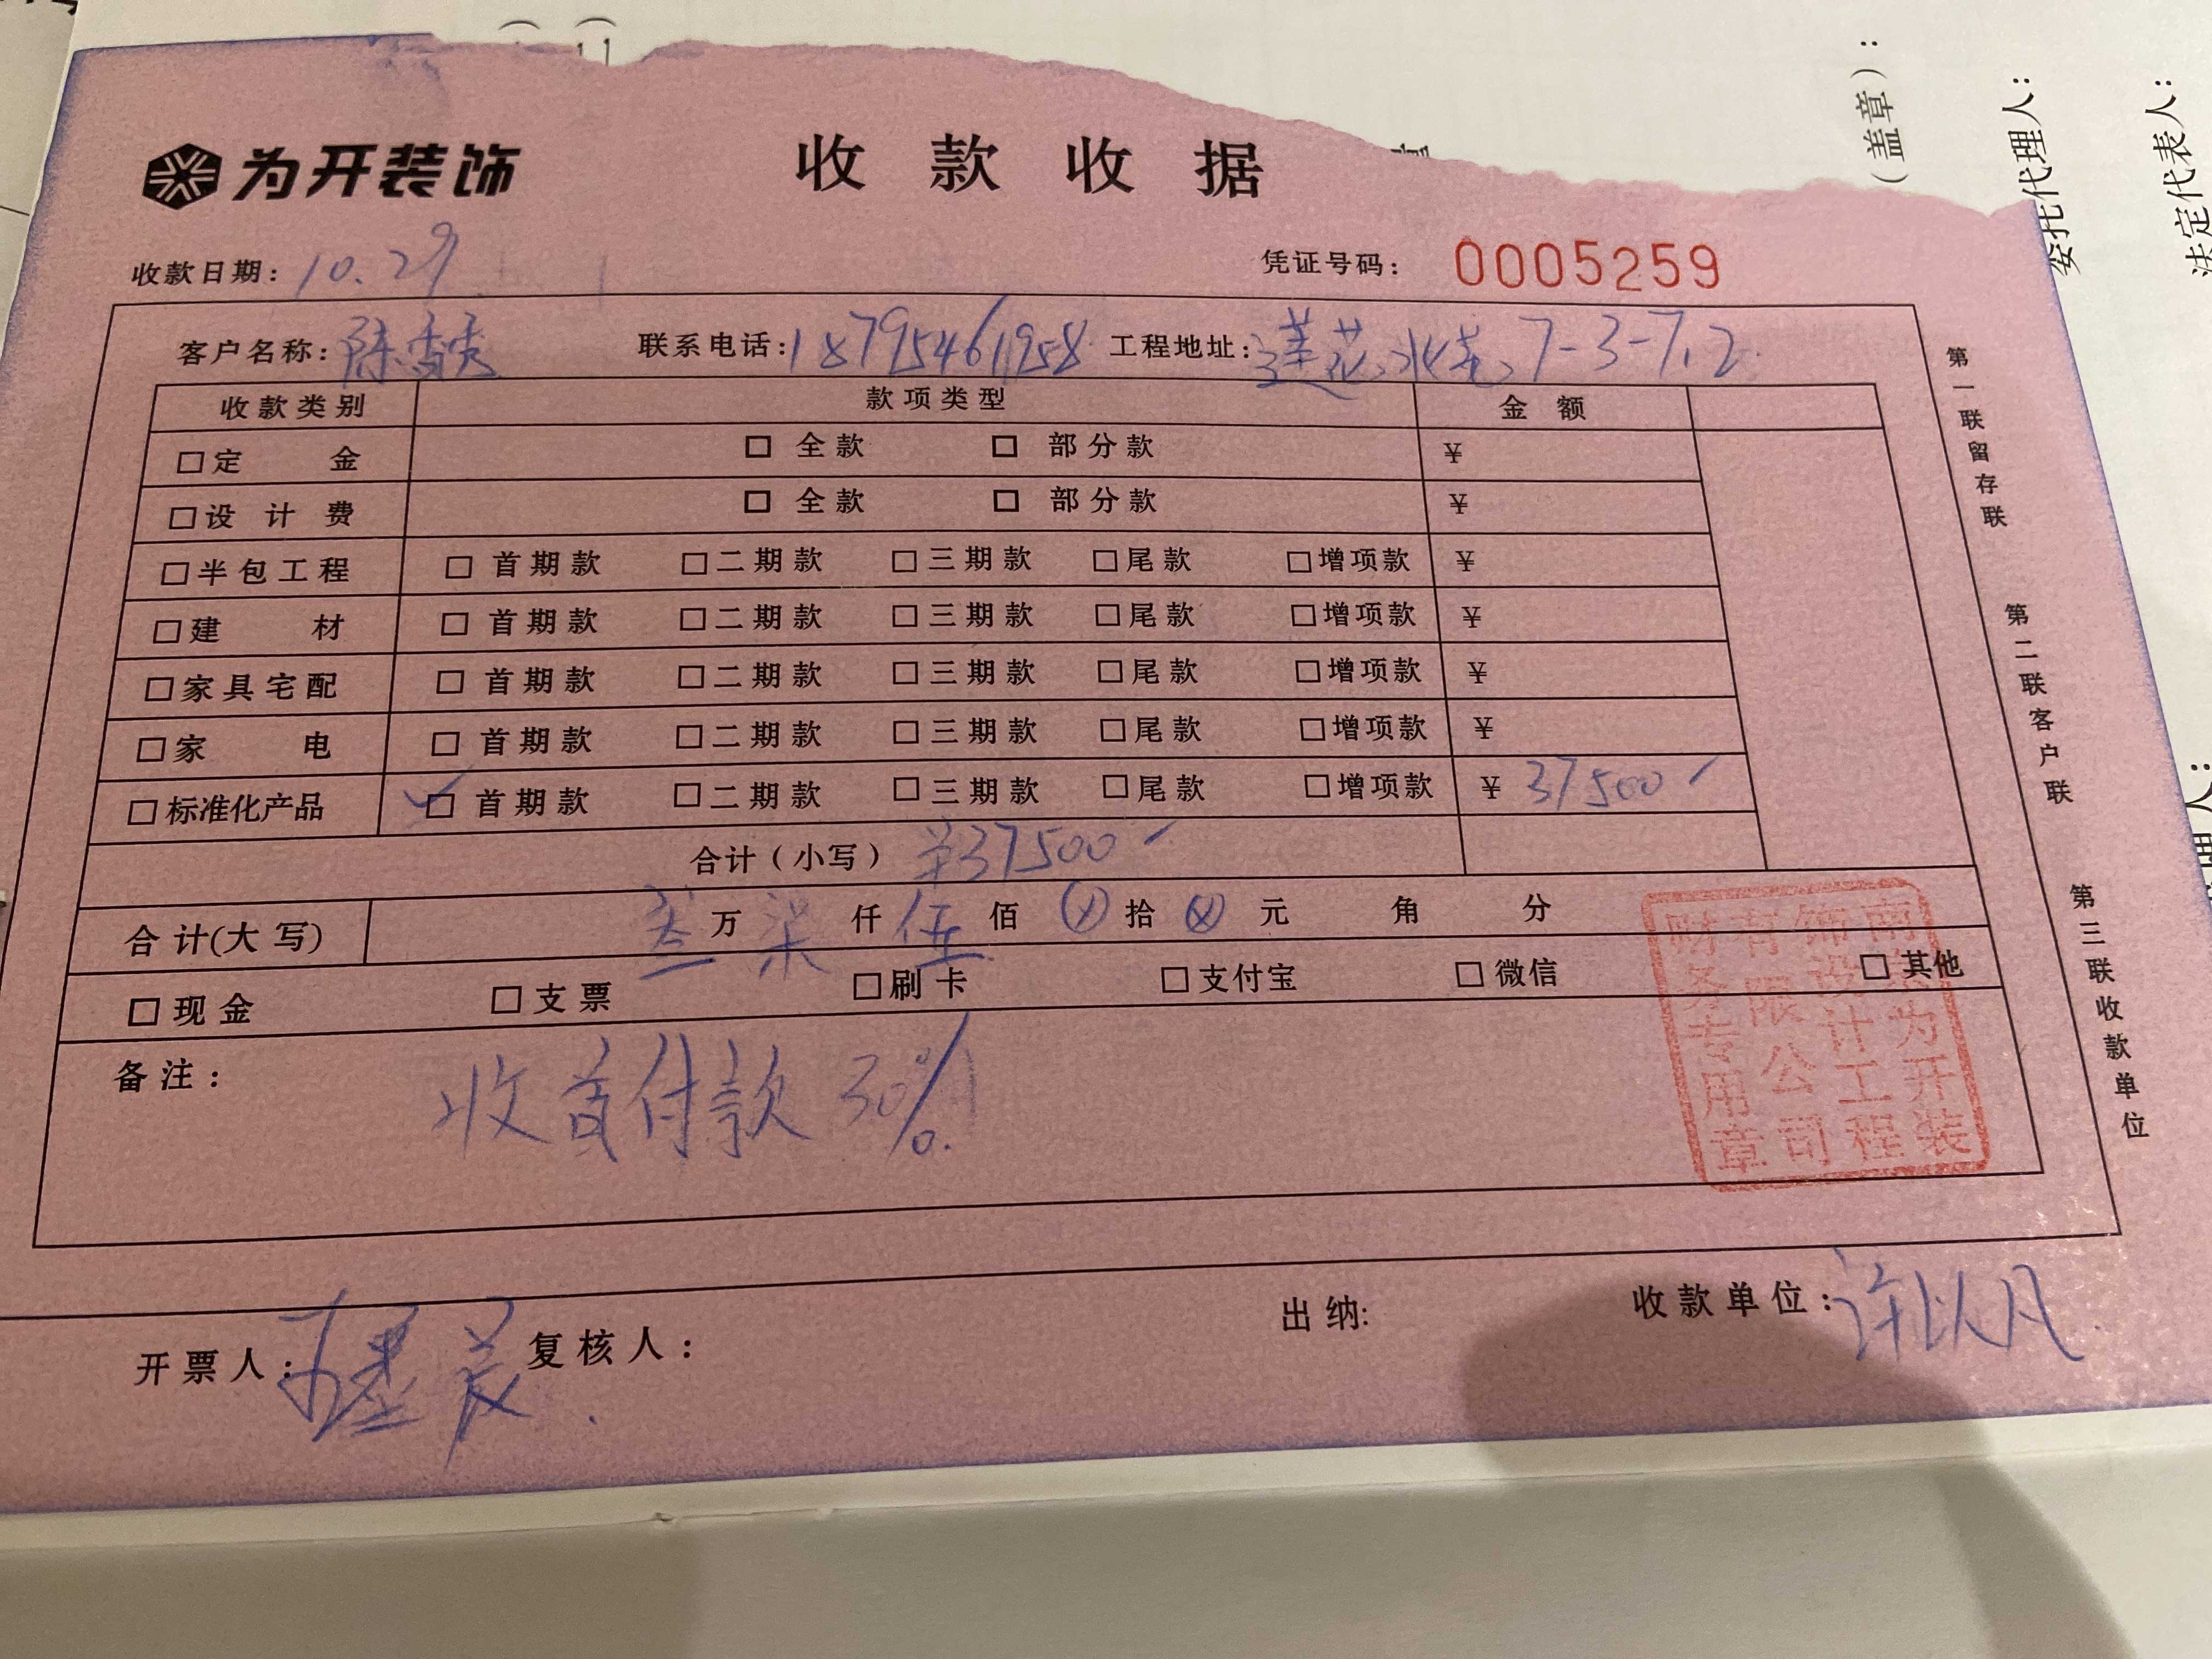 为开装饰
收款收据
收款日期: 10.29
凭证号码: 0005259
客户名称: 陈 联系电话: 18795461958 工程地址: 莲花水苑 7-3-712
收款类别 款项类型 金额
□定金 □ 全款 □ 部分款 ¥
□设计费 □ 全款 □ 部分款 ¥
□半包工程 □ 首期款 □二期款 □三期款 □尾款 □增项款 ¥
□建材 □ 首期款 □二期款 □三期款 □尾款 □增项款 ¥
□家具宅配 □ 首期款 □二期款 □三期款 □尾款 □增项款 ¥
□家电 □ 首期款 □二期款 □三期款 □尾款 □增项款 ¥
□标准化产品 ☑ 首期款 □二期款 □三期款 □尾款 □增项款 ¥ 37500
合计（小写） ¥37500
合计(大写) 叁万柒仟伍佰ⓧ拾ⓧ元 角 分
□现金 □支票 □刷卡 □支付宝 □微信 □其他
备注:
收首付款30%.
南京为开装
饰设计工程
有限公司
财务专用章
开票人: 复核人: 出纳: 收款单位: 许以凡
第一联留存联
第二联客户联
第三联收款单位
（盖章）:
委托代理人:
法定代表人: